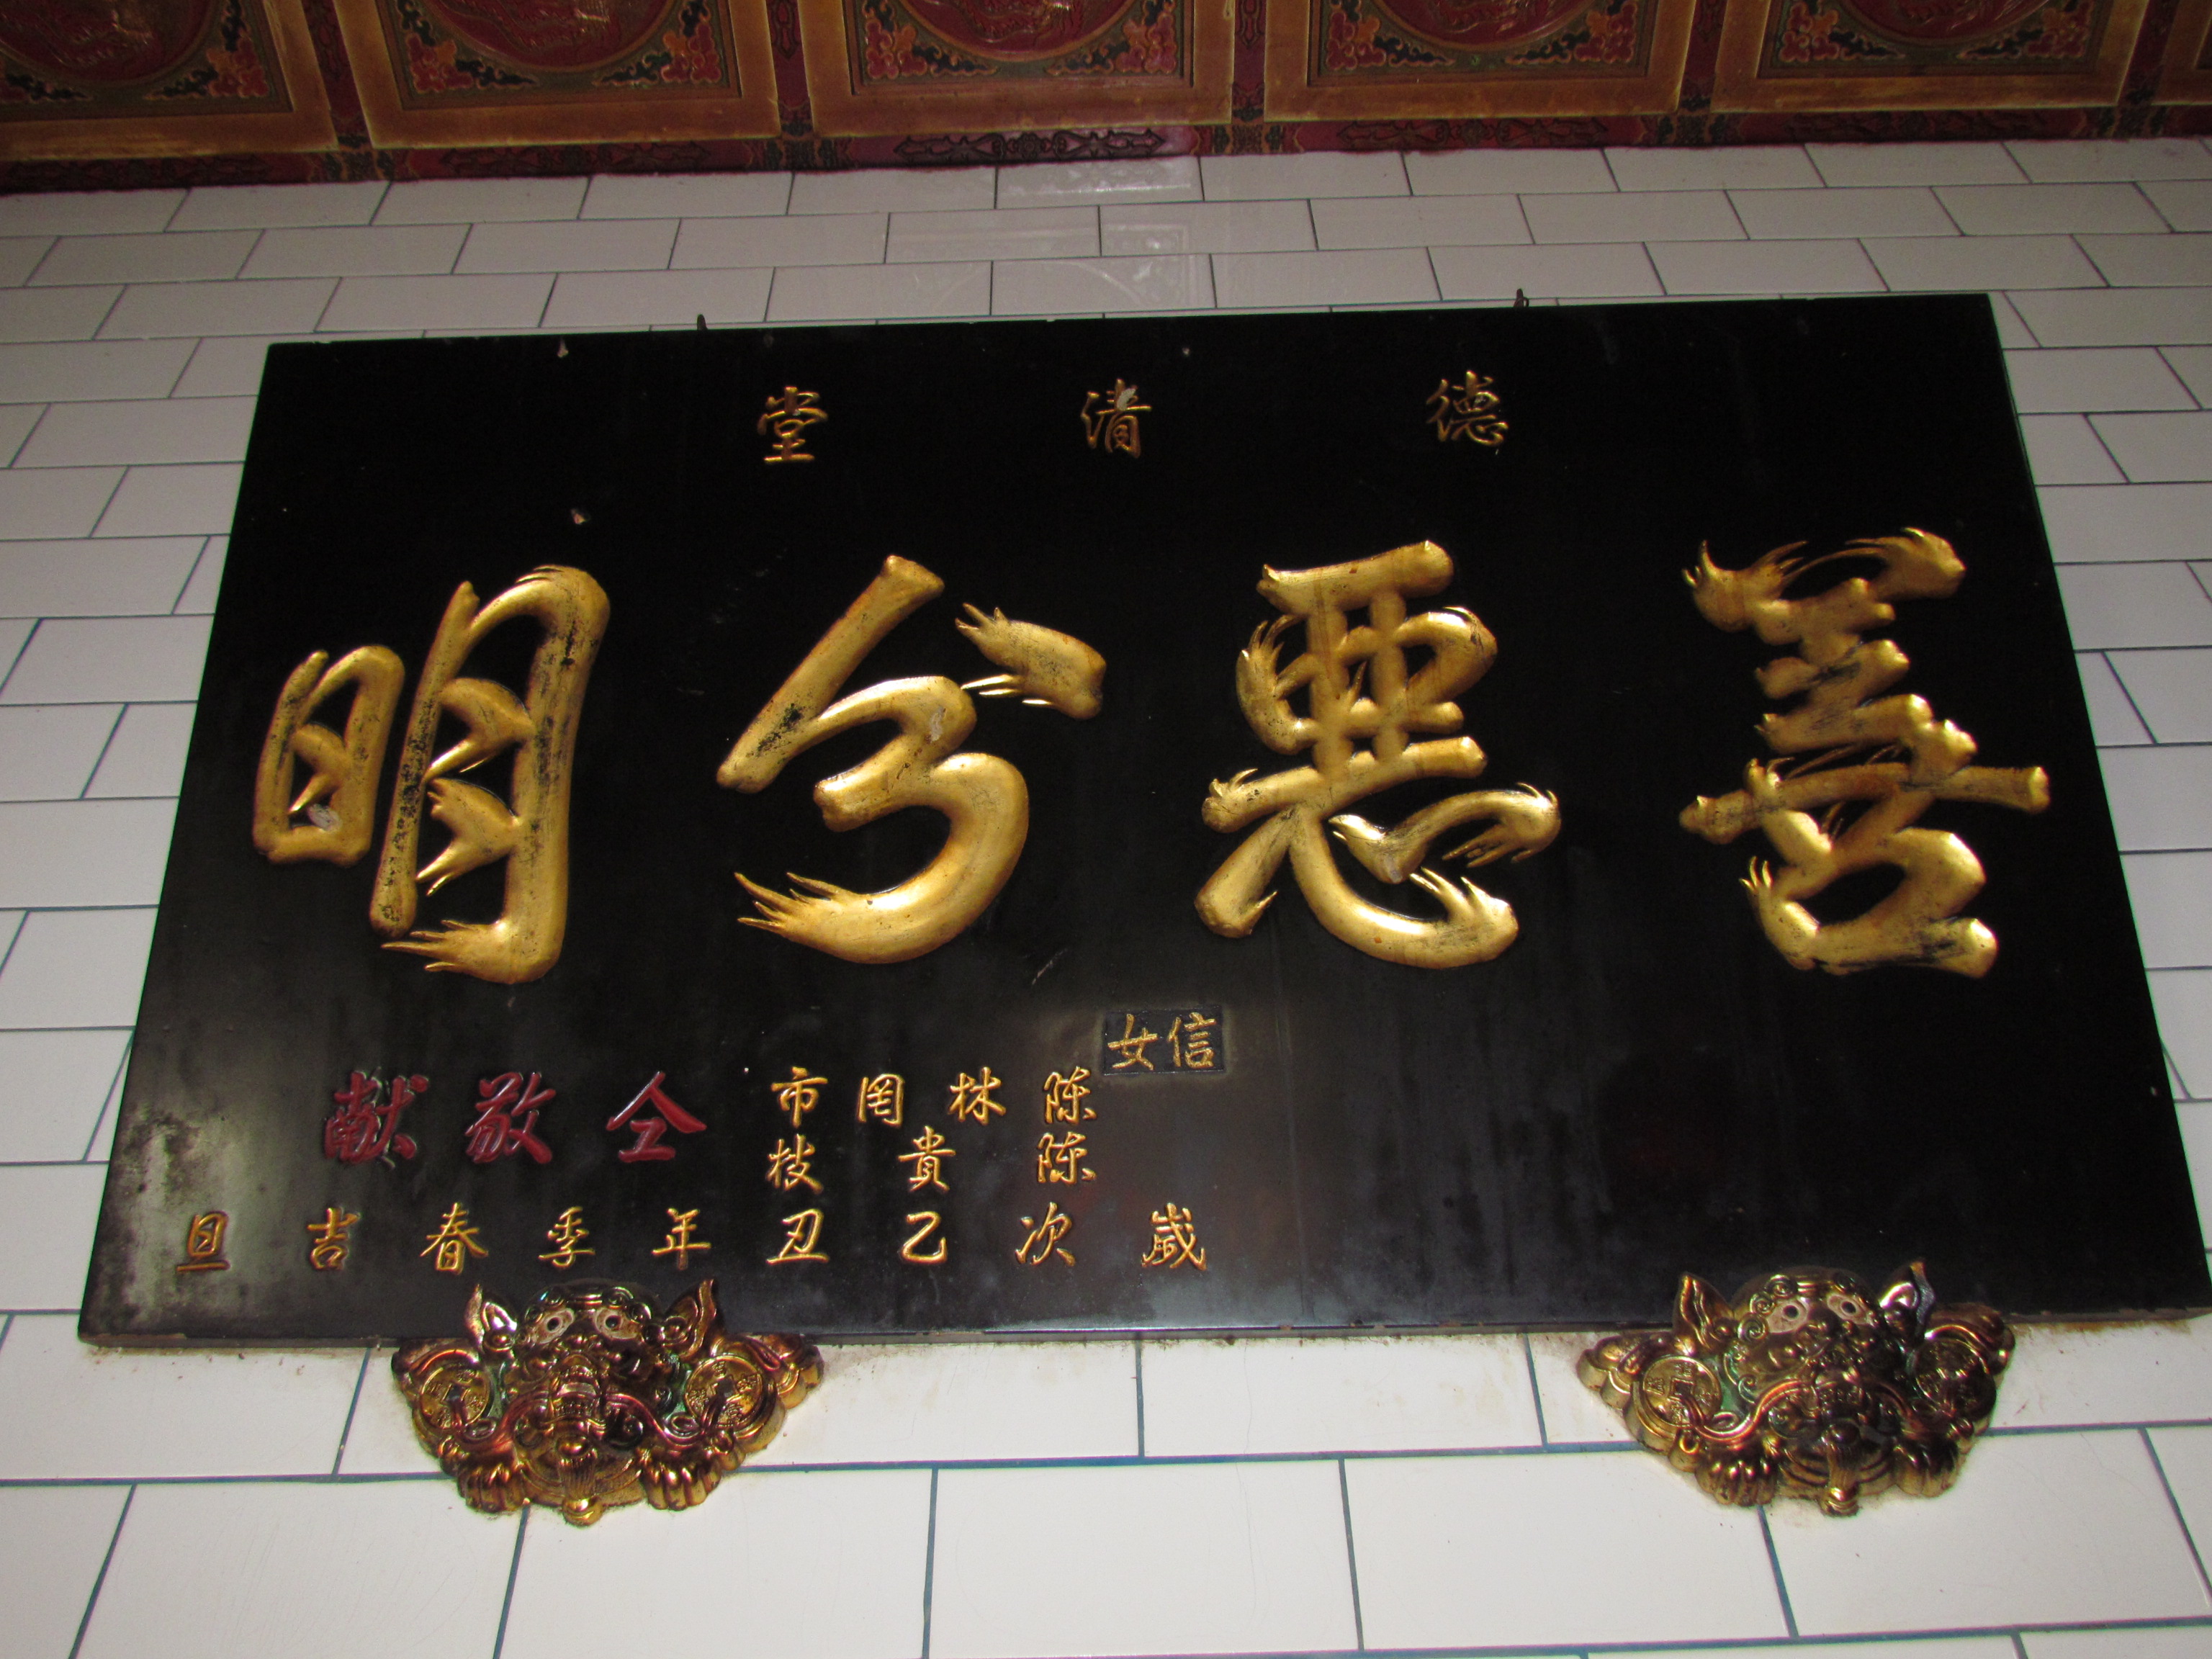 德清堂
善惡分明
信女
陳林罔市
陳貴枝
仝敬献
歲次乙丑年季春吉旦